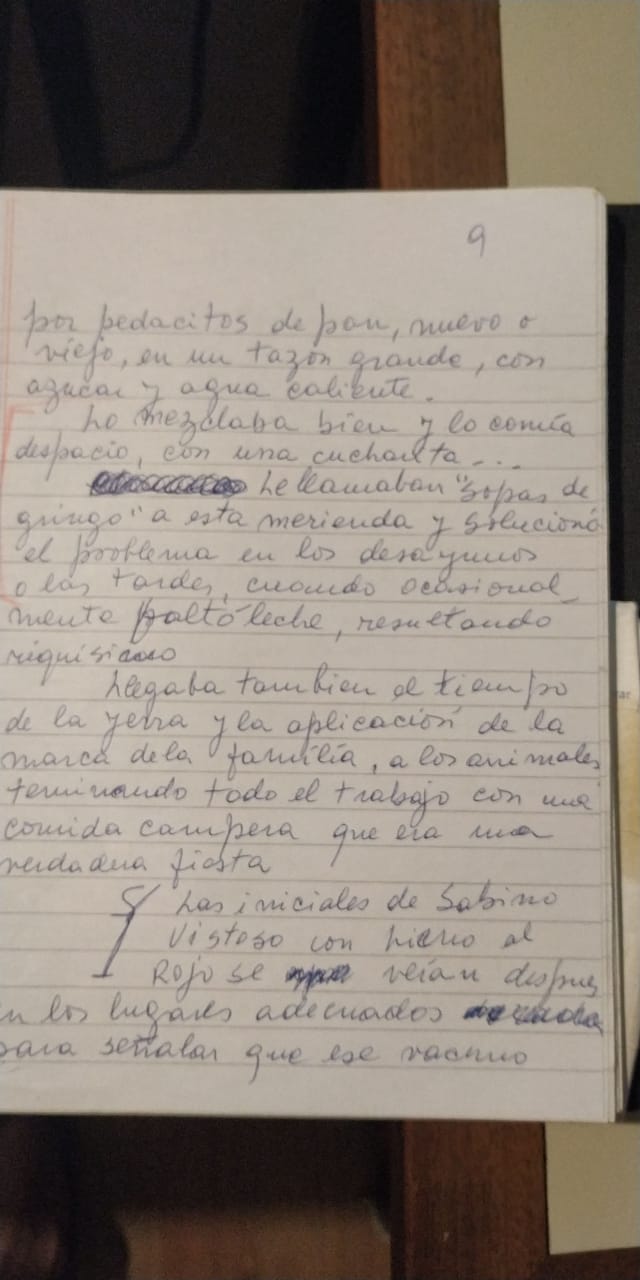 9
por pedacitos de pan, nuevo o
viejo, en un tazón grande, con
azucar y agua caliente.
Lo mezclaba bien y lo comía
despacio, con una cucharita....
Le llamaban "sopas de
gringo" a esta merienda y solucionó
el problema en los desayunos
o las tardes, cuando ocasional_
mente faltó leche, resultando
riquisimo
Llegaba tambien el tiempo
de la yerra y la aplicación de la
marca de la familia, a los animales
terminando todo el trabajo con una
comida campera que era una
verdadera fiesta
Las iniciales de Sabino
Vistoso con hierro al
Rojo se veían despues
en los lugares adecuados
para señalar que ese vacuno